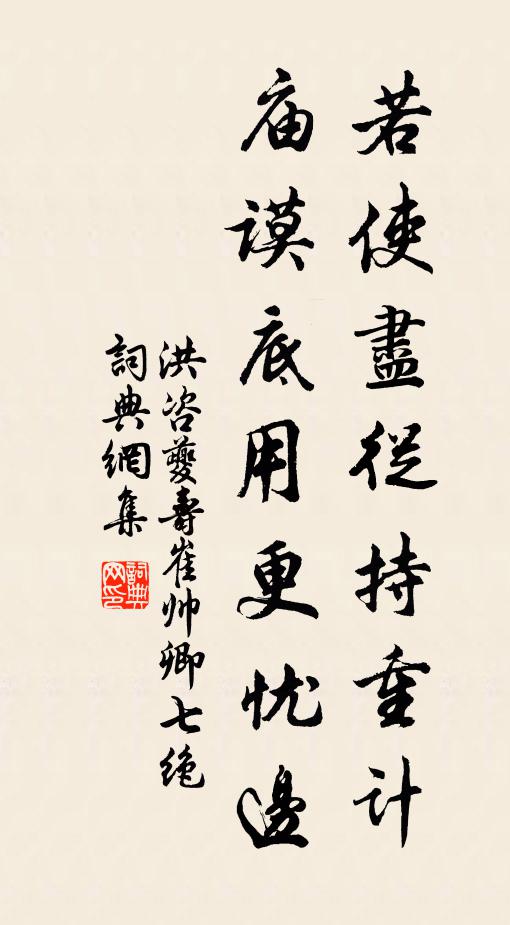 若使盡從持重計
庙谟底用更忧邊
洪咨夔壽崔帅卿七绝
詞典網集
詞典网印